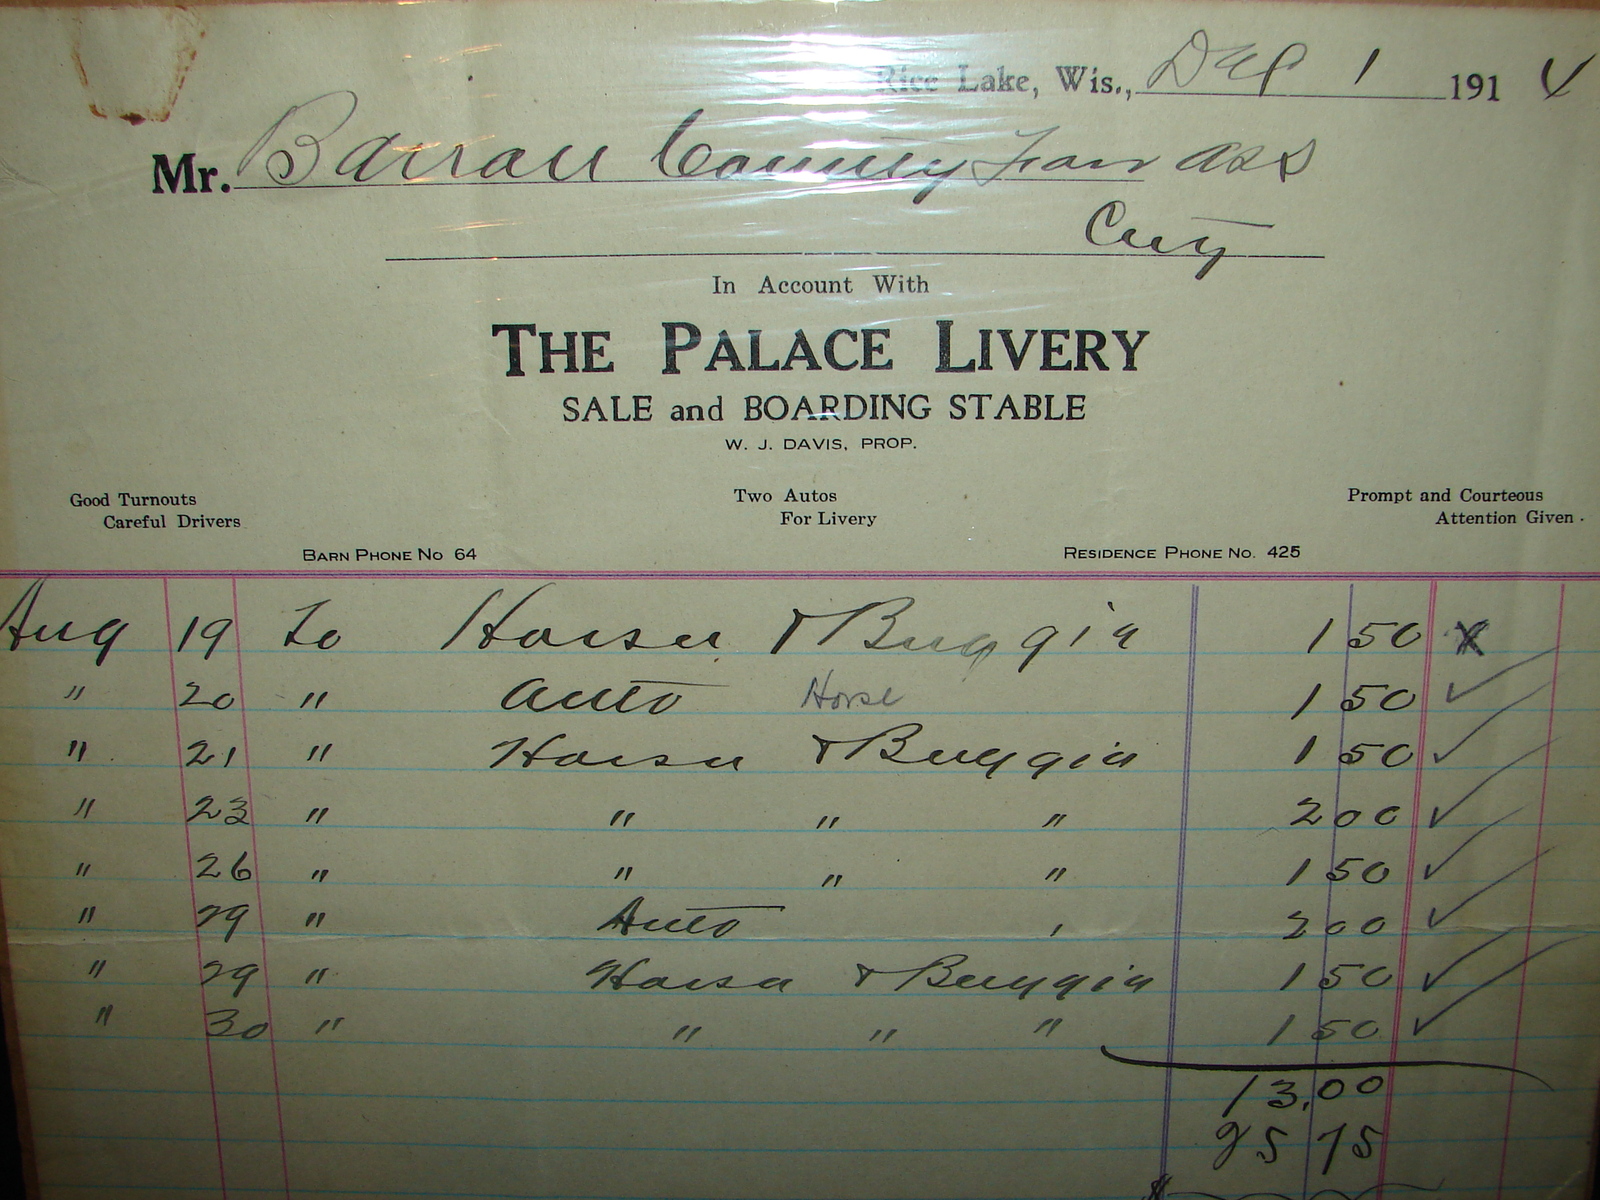 Rice Lake, Wis., Sep 1 1914
Mr. Barron County Fair Ass
City
In Account With
THE PALACE LIVERY
SALE and BOARDING STABLE
W. J. DAVIS, PROP.
Good Turnouts Careful Drivers
Two Autos For Livery
Prompt and Courteous Attention Given.
BARN PHONE NO 64 RESIDENCE PHONE NO. 425
Aug 19 To Horse & Buggie 1 50 x
" 20 " Auto Horse 1 50 ✓
" 21 " Horse & Buggie 1 50 ✓
" 23 " " " " 2 00 ✓
" 26 " " " " 1 50 ✓
" 29 " Auto 2 00 ✓
" 29 " Horse & Buggie 1 50 ✓
" 30 " " " " 1 50 ✓
13.00
25 75